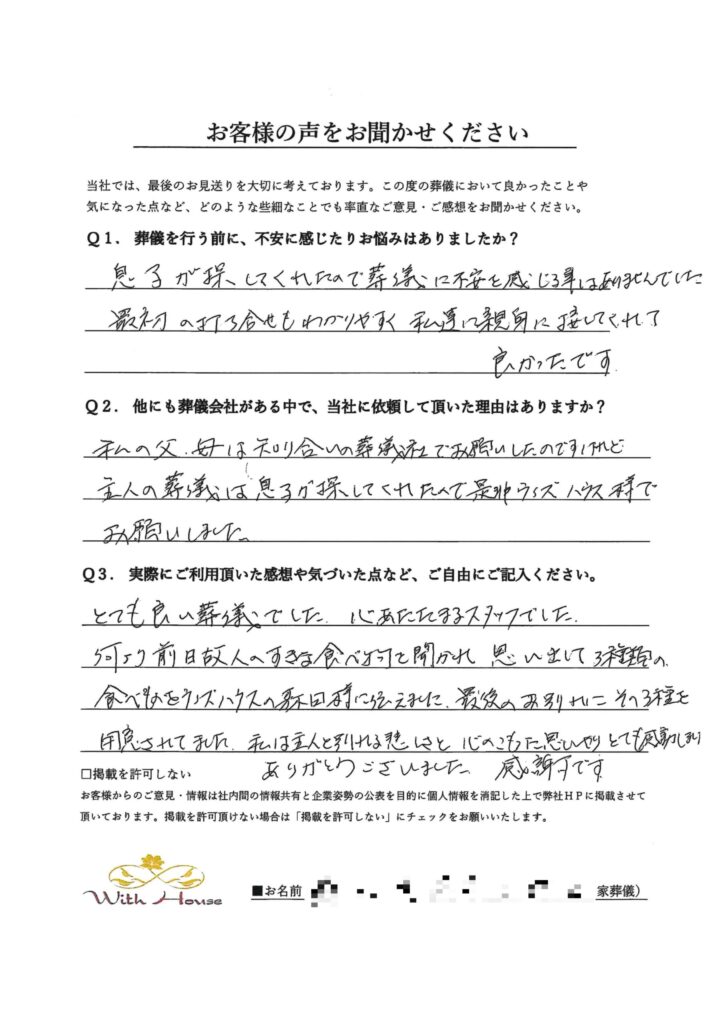 お客様の声をお聞かせください
当社では、最後のお見送りを大切に考えております。この度の葬儀において良かったことや
気になった点など、どのような些細なことでも率直なご意見・ご感想をお聞かせください。
Q1. 葬儀を行う前に、不安に感じたりお悩みはありましたか？
息子が探してくれたので葬儀に不安を感じる事はありませんでした
最初の打ち合せもわかりやすく私達に親身に接してくれて
良かったです.
Q2. 他にも葬儀会社がある中で、当社に依頼して頂いた理由はありますか？
私の父.母は知り合いの葬儀社でお願いしたのですけれど
主人の葬儀は息子が探してくれたので是非ウィズハウス様で
お願いしました。
Q3. 実際にご利用頂いた感想や気づいた点など、ご自由にご記入ください。
とても良い葬儀でした. 心あたたまるスタッフでした.
何より前日故人のすきな食べ物を聞かれ 思い出して3種類の
食べものをウィズハウスの 様に伝えました. 最後のお別れにその3種を
用意されてました. 私は主人と別れる悲しさと 心のこもった思いやり とても感動しました
ありがとうございました 感謝です
□掲載を許可しない
お客様からのご意見・情報は社内間の情報共有と企業姿勢の公表を目的に個人情報を消記した上で弊社HPに掲載させて
頂いております。掲載を許可頂けない場合は「掲載を許可しない」にチェックをお願いいたします。
With House
■お名前 家葬儀）